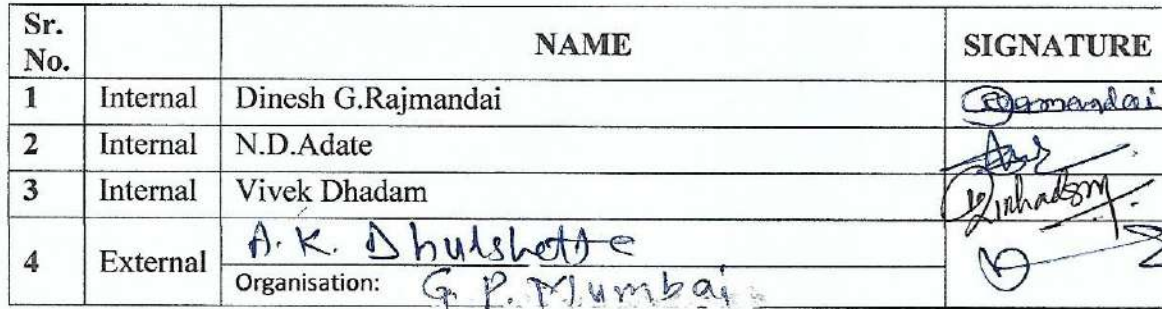 Sr. No. NAME SIGNATURE
1 Internal Dinesh G.Rajmandai
2 Internal N.D.Adate
3 Internal Vivek Dhadam
4 External A. K. Dhulshette
Organisation: G. P. Mumbai